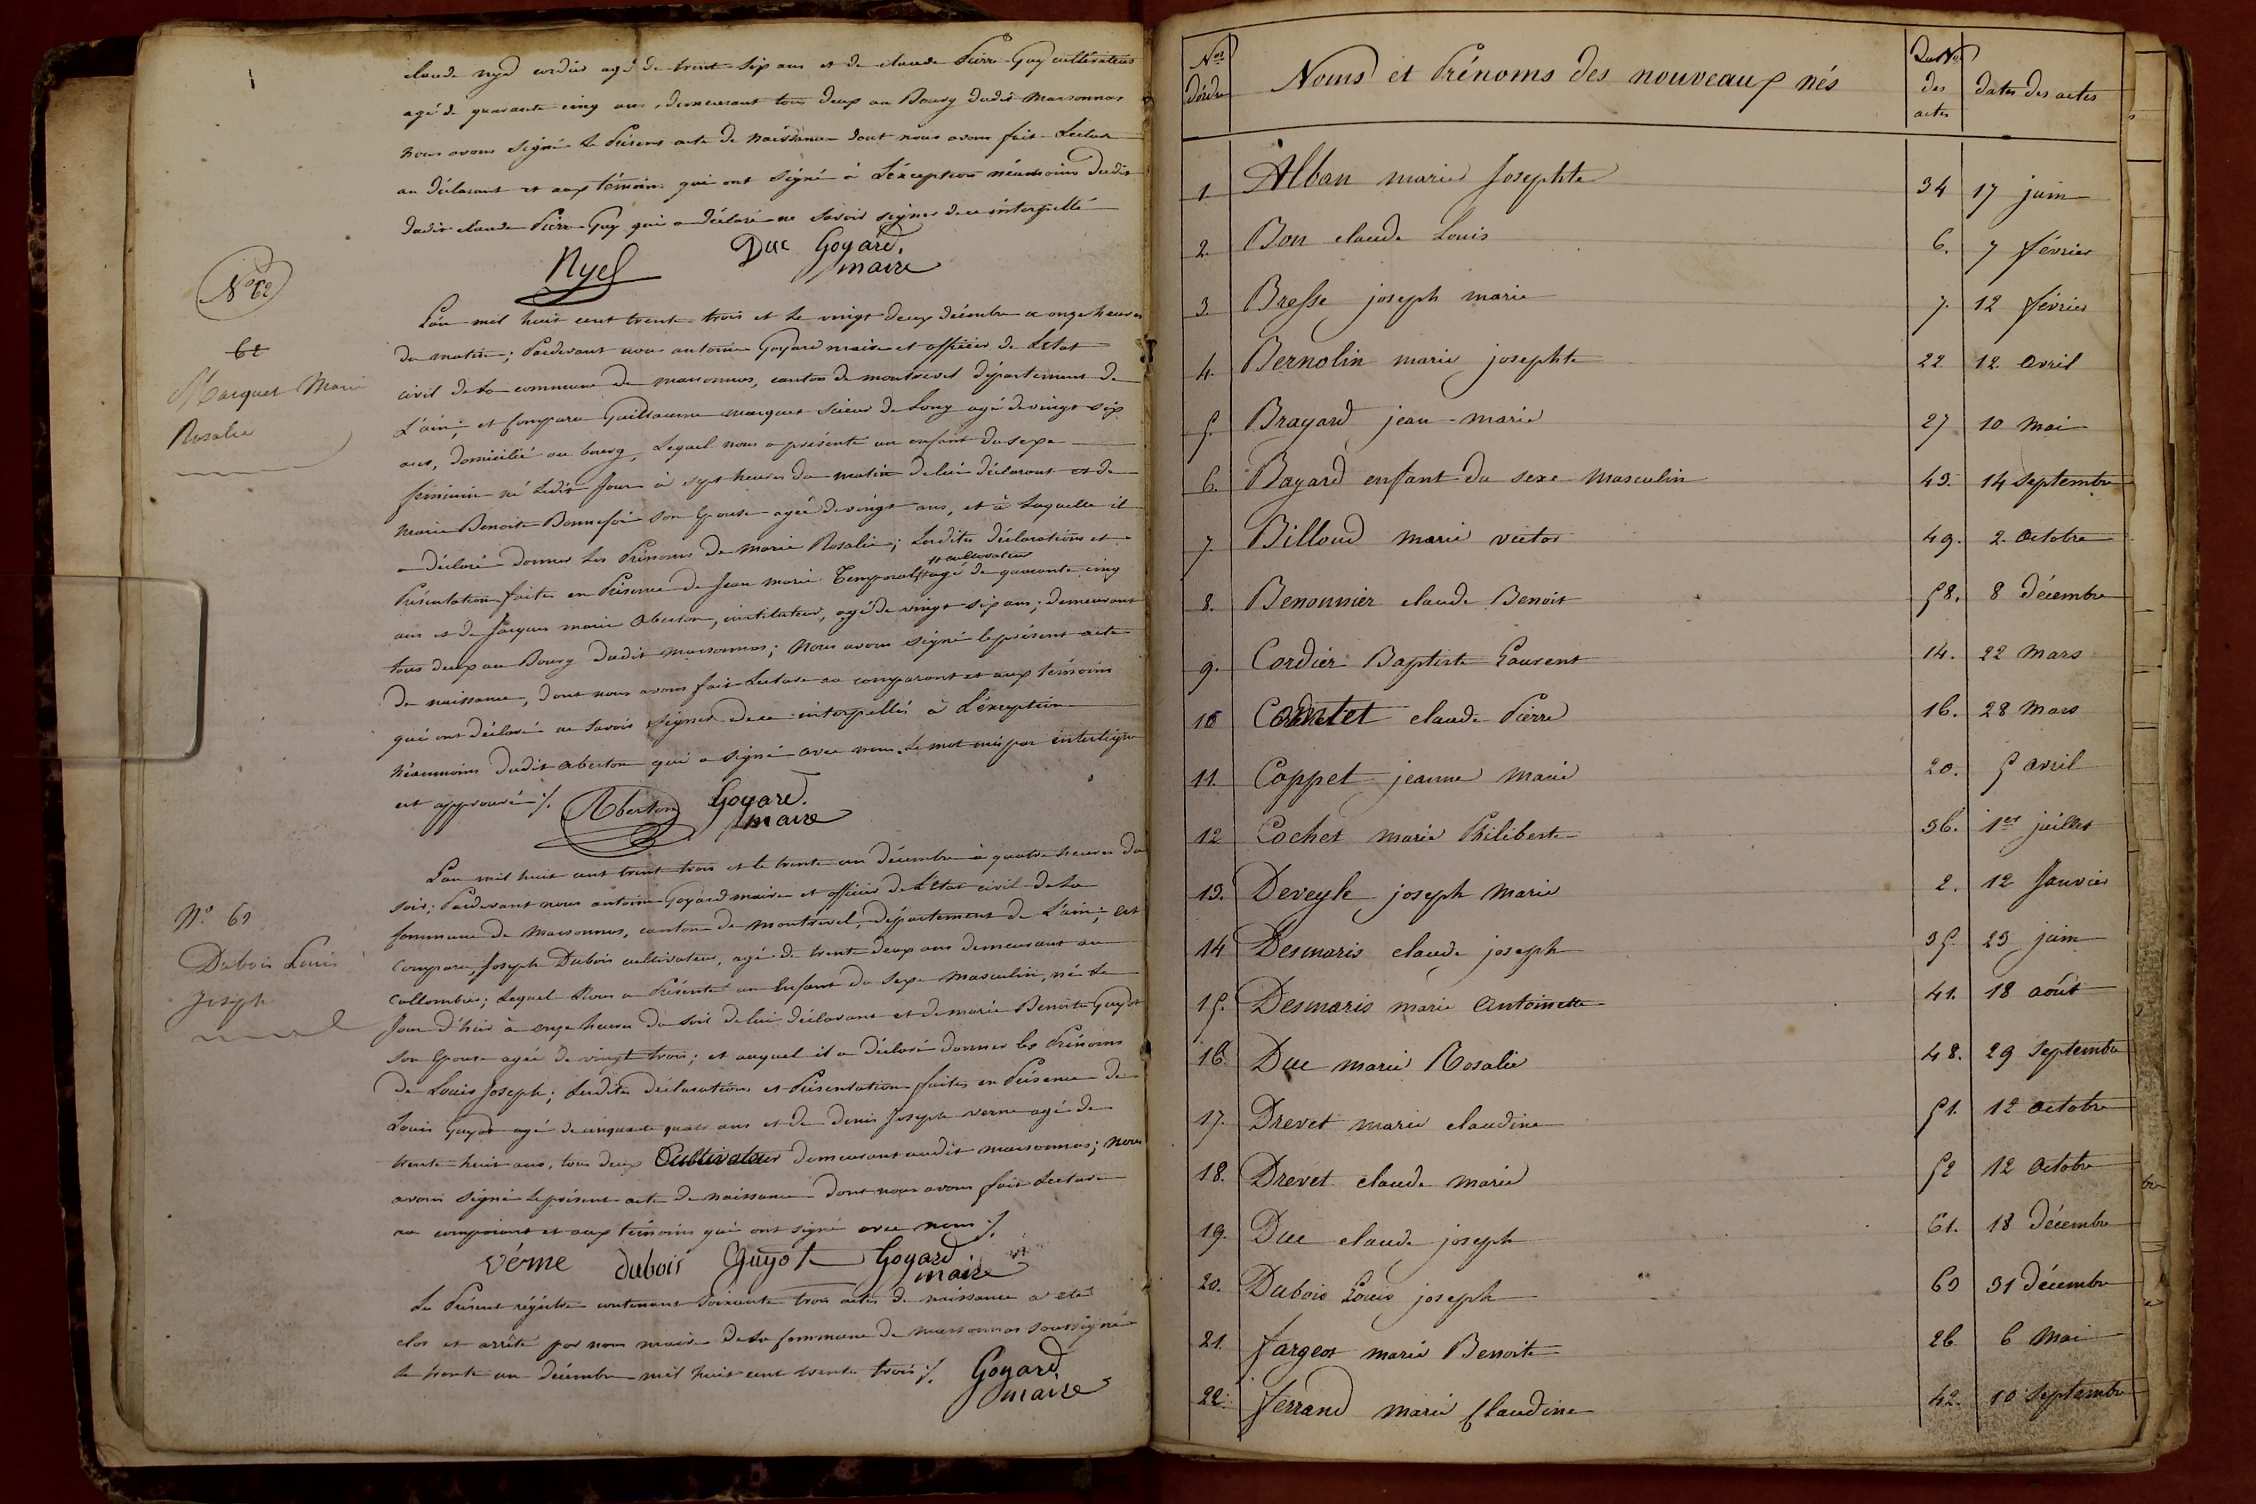 claude Nyel cordier agé de trente six ans et de claude Pierre Guy cultivateur
agé de quarante cinq ans, demeurant tous deux au Bourg dudit marsonnas
nous avons signé le Présent acte de Naissance dont nous avons fait Lecture
au déclarant et aux témoins qui ont signé à L'éxception néanmoins dudit
dudit claude Pierre Guy qui a déclaré ne savoir signer de ce interpellé
Nyel Duc Goyard.
maire
N° 62
L'an mil huit cent trente trois et le vingt deux décembre a onze heures
du matin; Pardevant nous antoine Goyard maire et officier de L'état
62
civil de La commune de marsonnas, canton de montrevel département de
Marquet Marie
L'ain; est Comparu Guillaume marquet Scieur de Long agé de vingt six
Rosalie
ans, domicilié au bourg, Lequel nous a présenté un enfant du sexe
féminin né Ledit Jour à sept heures du matin de lui déclarant et de
Marie Benoite Bonnefoi son Epouse agée de vingt ans, et à Laquelle il
a déclaré donner Les Prénoms de marie Rosalie; Lesdites déclarations et
cultivateur
Présentation faites en Présence de Jean marie Temporal agé de quarante cinq
ans et de Jacques marie Aberton, instituteur, agé de vingt six ans; demeurant
tous deux au Bourg dudit marsonnas; Nous avons signé le présent acte
de naissance, dont nous avons fait Lecture au comparant et aux témoins
qui ont déclaré ne savoir signer de ce interpellés à L'éxception
néanmoins dudit Aberton qui a signé avec nous. Le mot mis par interligne
est approuvé ./. Aberton Goyard.
maire
L'an mil huit cent trente trois et le trente un décembre à quatre heures du
soir; Pardevant nous antoine Goyard maire et officier de L'Etat civil de La
N° 63
Commune de Marsonnas, canton de montrevel, département de L'ain; est
Dubois Louis
comparu, Joseph Dubois cultivateur, agé de trente deux ans demeurant au
Joseph
Collombier; Lequel Nous a Présenté un Enfant du Sexe Masculin, né Le
Jour d'hier à onze heures du soir de lui déclarant et de marie Benoite Guyot
son Epouse agée de vingt trois; et auquel il a déclaré donner les Prénoms
de Louis Joseph; Lesdites déclarations et Présentation faites en Présence de
Louis Guyot agé de cinquante quatre ans et de denis Joseph verne agé de
trente huit ans, tous deux Cultivateur demeurant audit marsonnas; Nous
avons signé Le présent acte de Naissance dont nous avons fait Lecture
au comparant et aux témoins qui ont signé avec nous ./.
vérne dubois Guyot Goyard
maire
Le Présent régistre contenant soixante trois actes de naissance a eté
clos et arrêté par nous maire de La Commune de marsonnas soussigné
le trente un décembre mil huit cent trente trois ./. Goyard
maire
Nos d'ordre Noms et Prénoms des nouveaux nés Les Nos des actes dates des actes
1. Alban marie Josephte 34 17 juin
2. Bon claude Louis 6. 7 février
3. Bresse joseph marie 7. 12 février
4. Bernolin marie josephte 22 12 avril
5. Brayard jean-marie 27 10 mai
6. Bayard enfant du sexe masculin 43. 14 septembre
7. Billoud marie victor 49. 2 octobre
8. Benonnier claude Benoit 58. 8 décembre
9. Cordier Baptiste Laurent 14. 22 mars
10 claude Pierre 16. 28 mars
11. Coppet jeanne marie 20. 5 avril
12 Cochet marie Philiberte 36. 1er juillet
13. Deveyle joseph marie 2. 12 Janvier
14 Desmaris claude joseph 35. 23 juin
15. Desmaris marie antoinette 41. 18 août
16. Duc marie Rosalie 48. 29 septembre
17. Drevet marie claudine 51. 12 octobre
18. Drevet claude marie 52 12 octobre
19. Duc claude joseph 61. 18 décembre
20. Dubois Louis joseph 63 31 décembre
21. Fargeot marie Benoite 26 6 mai
22. Ferrand marie Claudine 42. 10 septembre